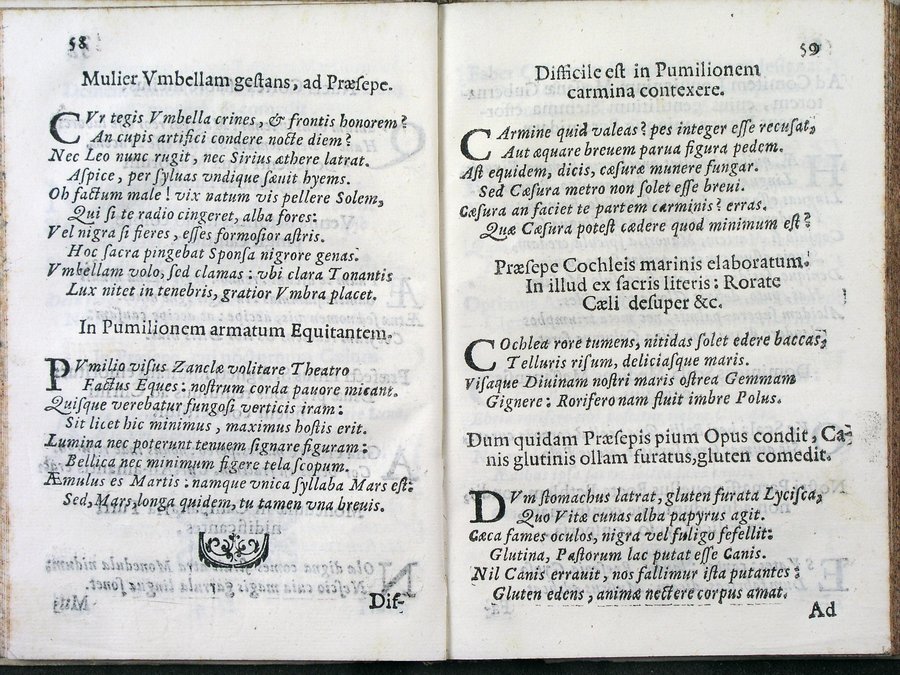 58
Mulier Vmbellam gestans, ad Præsepe.
CVr tegis Vmbella crines, & frontis honorem?
An cupis artifici condere nocte diem?
Nec Leo nunc rugit, nec Sirius æthere latrat.
Aspice, per syluas vndique sæuit hyems.
Oh factum male! vix natum vis pellere Solem,
Qui si te radio cingeret, alba fores:
Vel nigra si fieres, esses formosior astris.
Hoc sacra pingebat Sponsa nigrore genas.
Vmbellam volo, sed clamas: vbi clara Tonantis
Lux nitet in tenebris, gratior Vmbra placet.
In Pumilionem armatum Equitantem.
PVmilio visus Zanclæ volitare Theatro
Factus Eques: nostrum corda pauore micant.
Quisque verebatur fungosi verticis iram:
Sit licet hic minimus, maximus hostis erit.
Lumina nec poterunt tenuem signare figuram:
Bellica nec minimum figere tela scopum.
Æmulus es Martis: namque vnica syllaba Mars est:
Sed, Mars longa quidem, tu tamen vna breuis.
Dif-
59
Difficile est in Pumilionem
carmina contexere.
CArmine quid valeas? pes integer esse recusat,
Aut æquare breuem parua figura pedem.
Ast equidem, dicis, cæsuræ munere fungar.
Sed Cæsura metro non solet esse breui.
Cæsura an faciet te partem carminis? erras.
Quæ Cæsura potest cædere quod minimum est?
Præsepe Cochleis marinis elaboratum.
In illud ex sacris literis: Rorate
Cæli desuper &c.
COchlea rore tumens, nitidas solet edere baccas,
Telluris risum, deliciasque maris.
Visaque Diuinam nostri maris ostrea Gemmam
Gignere: Rorifero nam fluit imbre Polus.
Dum quidam Præsepis pium Opus condit, Ca-
nis glutinis ollam furatus, gluten comedit.
DVm stomachus latrat, gluten furata Lycisca,
Quo Vitæ cunas alba papyrus agit.
Cæca fames oculos, nigra vel fuligo fefellit:
Glutina, Pastorum lac putat esse Canis.
Nil Canis errauit, nos fallimur ista putantes:
Gluten edens, animæ nectere corpus amat.
Ad